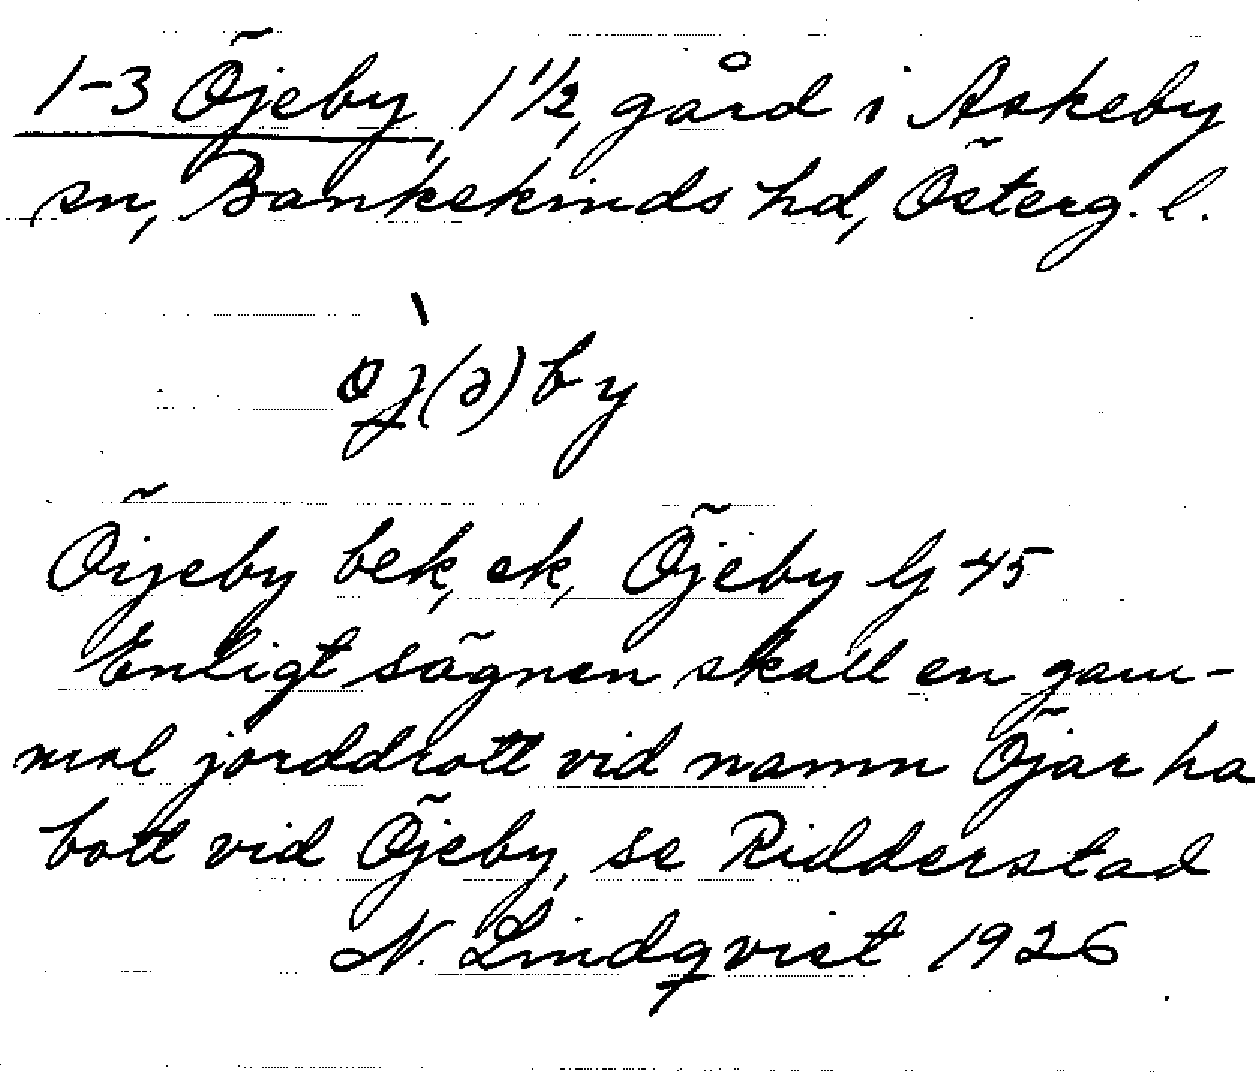 1-3 Öjeby, 1 1/2, gård i Askeby
sn, Bankekinds hd, Österg. l.
öj(ə)by
Öijeby bek, ek, Öjeby Gj 45
Enligt sägnen skall en gam-
mal jorddrott vid namn Öjar ha
bott vid Öjeby, se Ridderstad
N. Lindqvist 1926